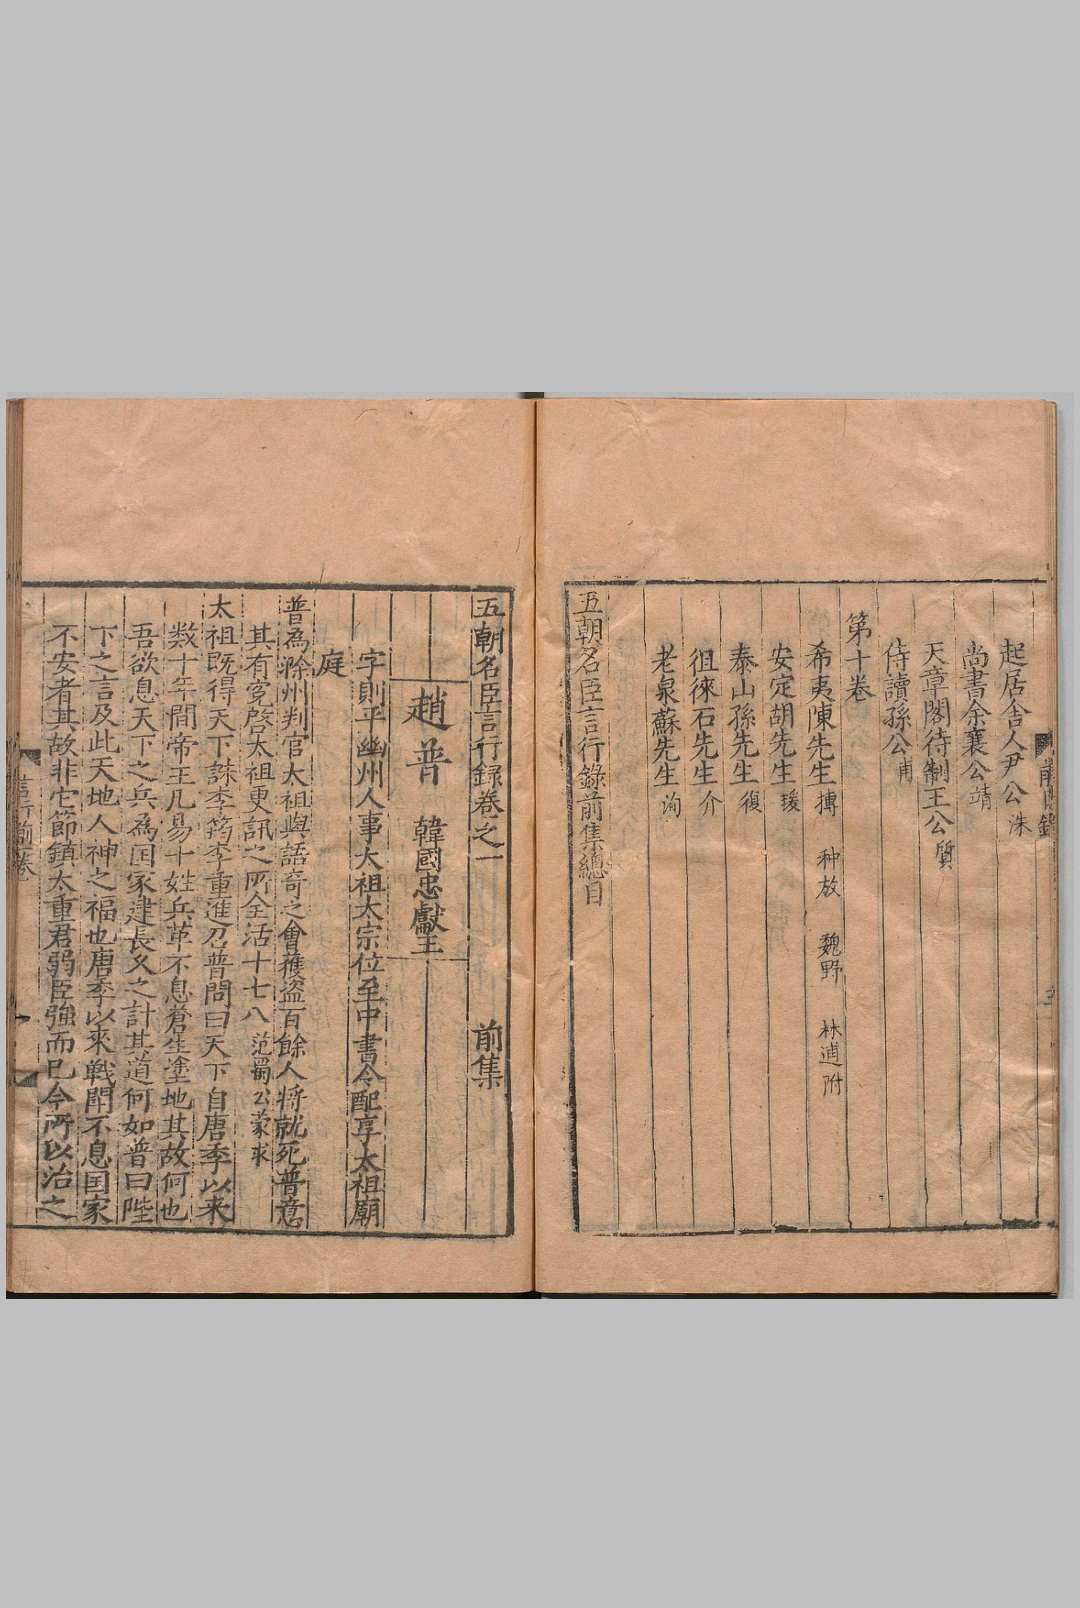 起居舍人尹公 洙
尚書余襄公 靖
天章閣待制王公 質
侍讀孫公 甫
第十卷
希夷陳先生 摶 种放 魏野 林逋附
安定胡先生 瑗
泰山孫先生 復
徂徠石先生 介
老泉蘇先生 洵
五朝名臣言行錄前集總目
五朝名臣言行録卷之一 前集
趙普 韓國忠獻王
字則平幽州人事太祖太宗位至中書令配享太祖廟
庭
普為滁州判官太祖與語奇之會獲盗百餘人將就死普意
其有寃啓太祖更訊之所全活十七八 范蜀公蒙求
太祖既得天下誅李筠李重進召普問曰天下自唐季以来
数十年間帝王凡易十姓兵革不息蒼生塗地其故何也
吾欲息天下之兵為国家建長久之計其道何如普曰陛
下之言及此天地人神之福也唐季以來戦鬪不息国家
不安者其故非它節鎮太重君弱臣強而已今所以治之